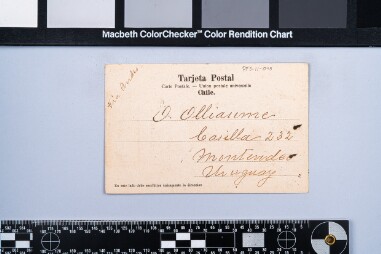 Macbeth ColorChecker™ Color Rendition Chart
Via Andes
Tarjeta Postal
Carte Postale. — Union postale universelle
Chile.
O. Olliaume
Casilla 232
Montevideo
Uruguay
En este lado debe escribirse únicamente la dirección